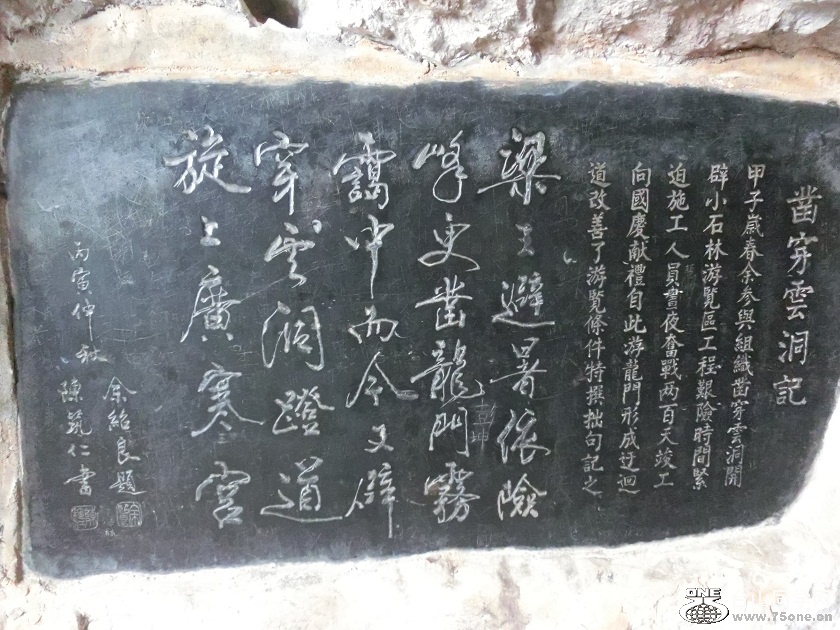 凿穿雲洞記
甲子歲春余参與組織凿穿雲洞開
辟小石林游覽區工程艱險時間緊
迫施工人員晝夜奮戰两百天竣工
向國慶献禮自此游龍門形成迂迴
道改善了游覧條件特撰拙句記之
梁王避暑依險
峰更凿龍門霧
靄中而今又辟
穿雲洞蹬道
旋上廣寒宫
丙寅仲秋
余紹良題
陳箢仁書
ONE
www.75one.cn